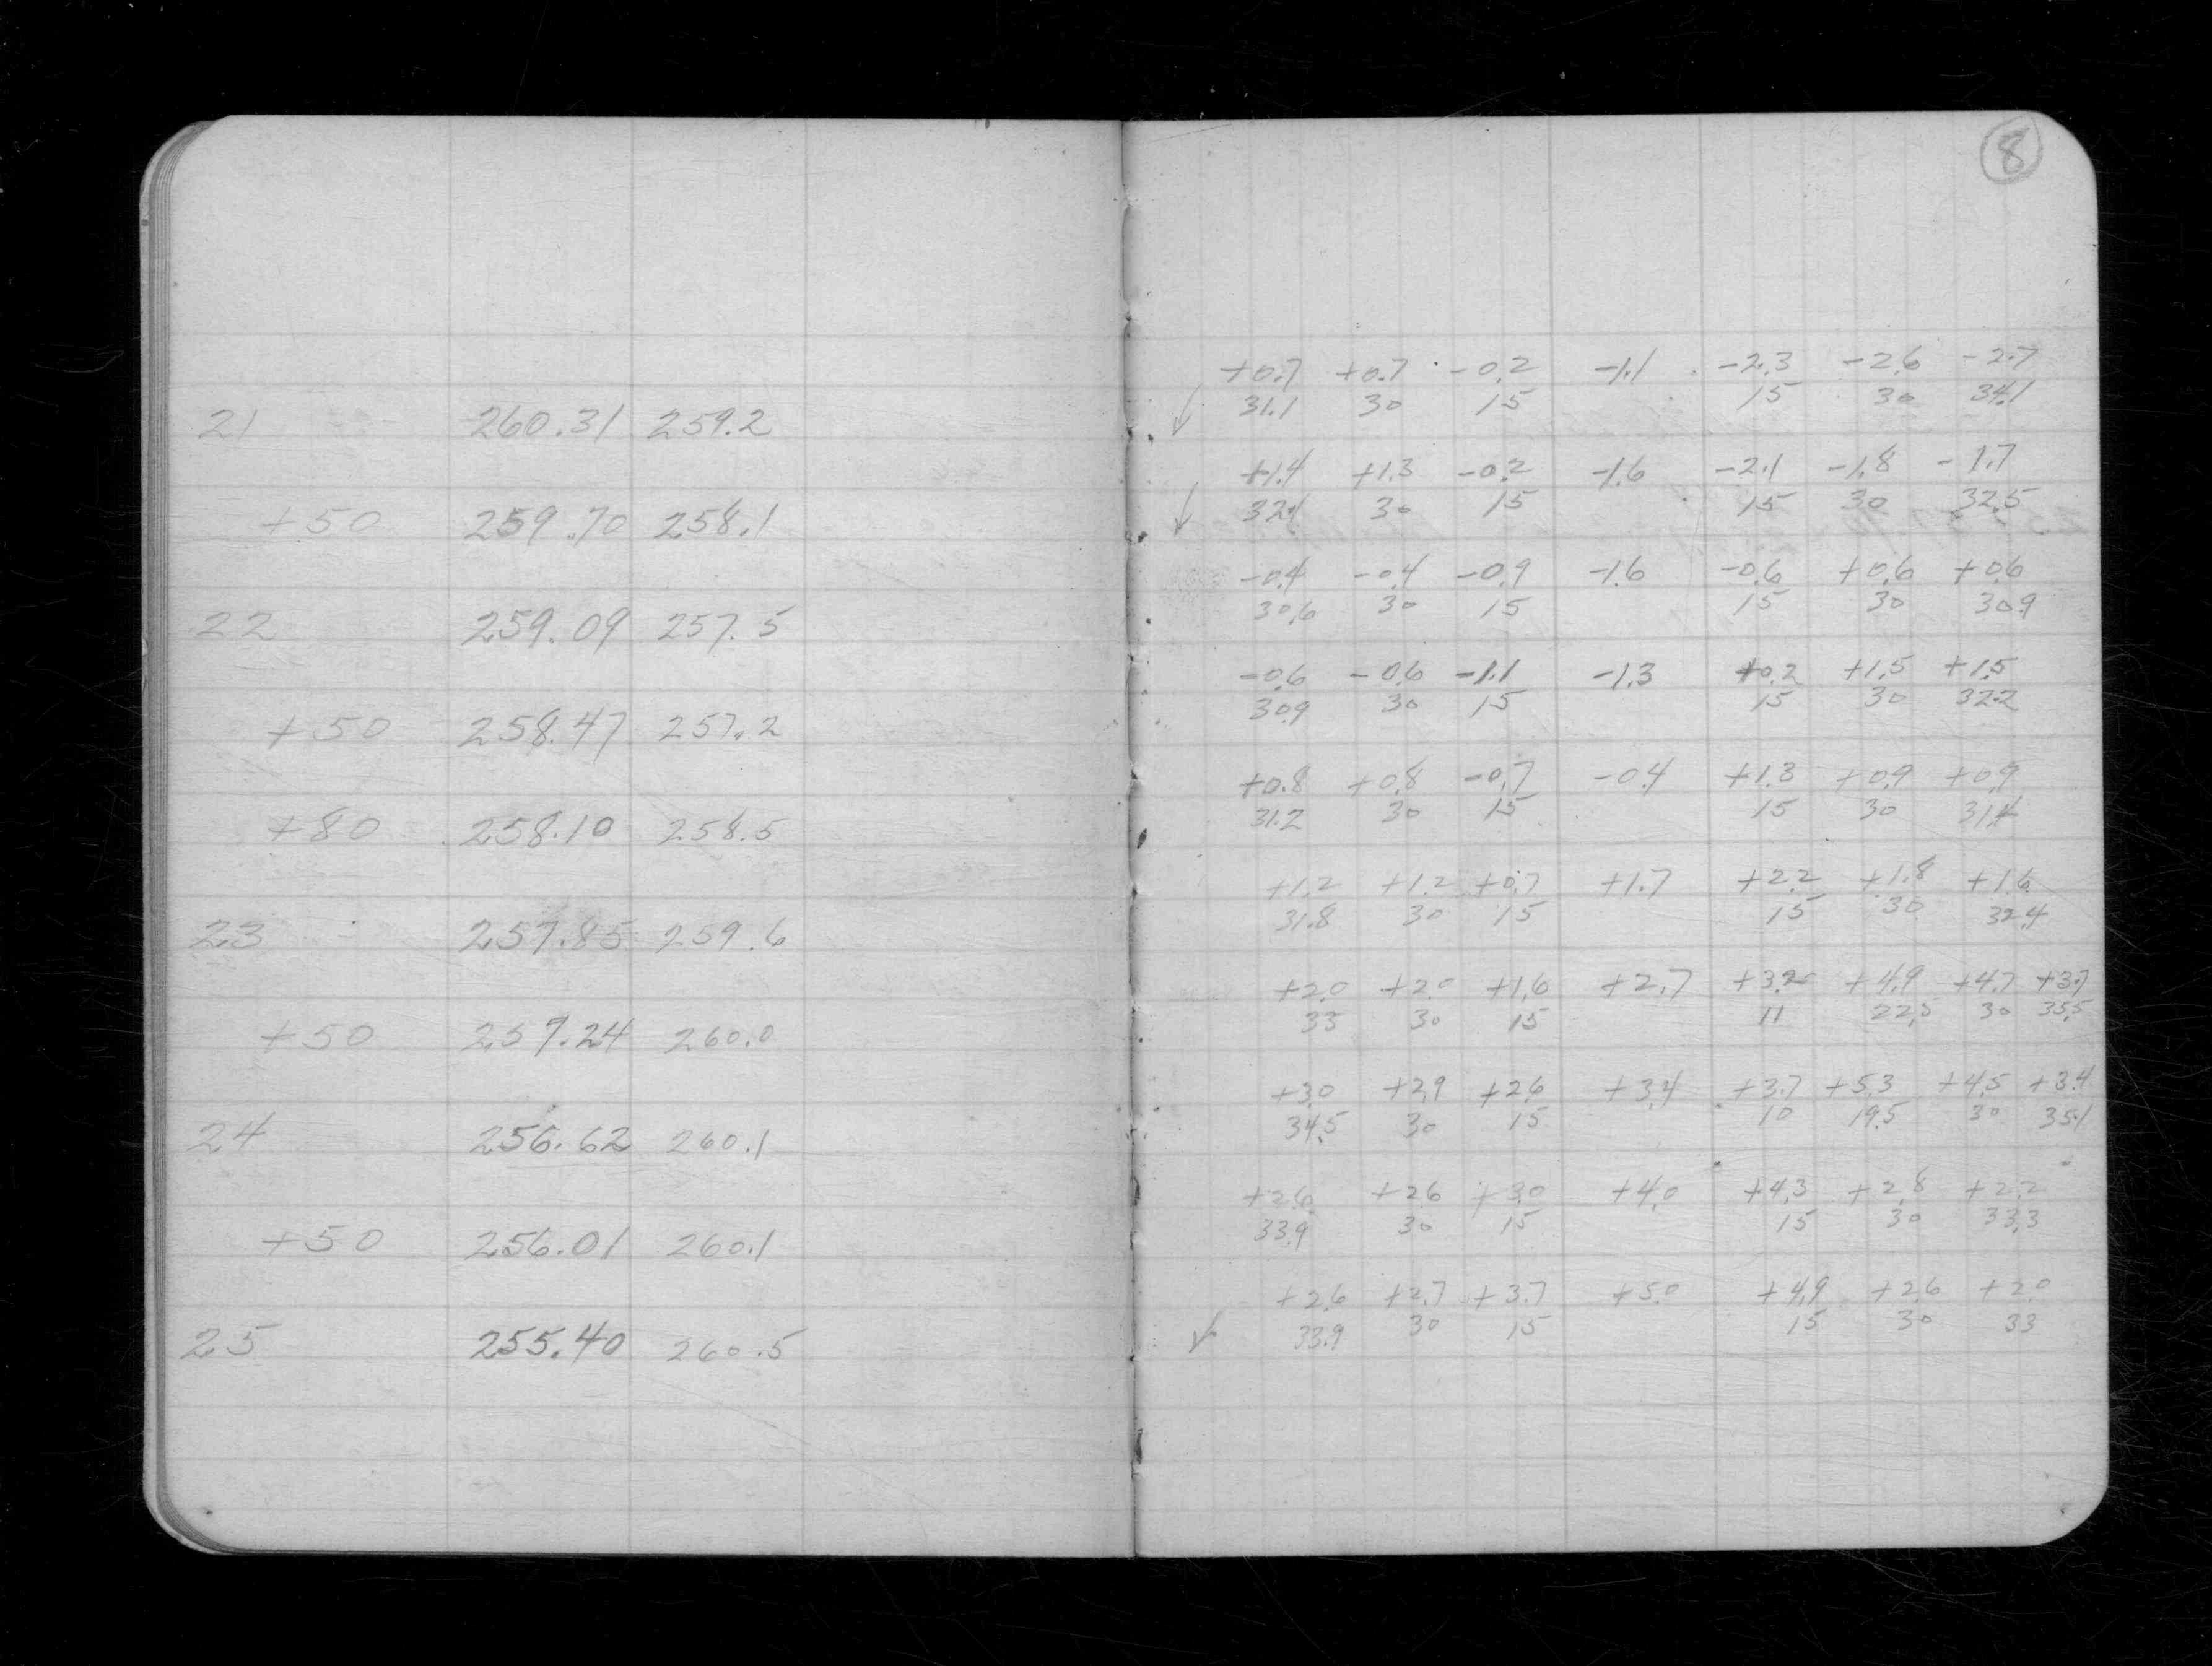 21 260.31 259.2
+50 259.70 258.1
22 259.09 257.5
+50 258.47 257.2
+80 258.10 258.5
23 257.85 259.6
+50 257.24 260.0
24 256.62 260.1
+50 256.01 260.1
25 255.40 260.5
8
+0.7 +0.7 -0.2 -1.1 -2.3 -2.6 -2.7
31.1 30 15 15 30 34.1
+1.4 +1.3 -0.2 -1.6 -2.1 -1.8 -1.7
32.1 30 15 15 30 32.5
-0.4 -0.4 -0.9 -1.6 -0.6 +0.6 +0.6
30.6 30 15 15 30 30.9
-0.6 -0.6 -1.1 -1.3 +0.2 +1.5 +1.5
30.9 30 15 15 30 32.2
+0.8 +0.8 -0.7 -0.4 +1.3 +0.9 +0.9
31.2 30 15 15 30 31.4
+1.2 +1.2 +0.7 +1.7 +2.2 +1.8 +1.6
31.8 30 15 15 30 32.4
+2.0 +2.0 +1.6 +2.7 +3.2 +4.9 +4.7 +3.7
33 30 15 11 22.5 30 35.5
+3.0 +2.9 +2.6 +3.4 +3.7 +5.3 +4.5 +3.4
34.5 30 15 10 19.5 30 35.1
+2.6 +2.6 +3.0 +4.0 +4.3 +2.8 +2.2
33.9 30 15 15 30 33.3
+2.6 +2.7 +3.7 +5.0 +4.9 +2.6 +2.0
33.9 30 15 15 30 33